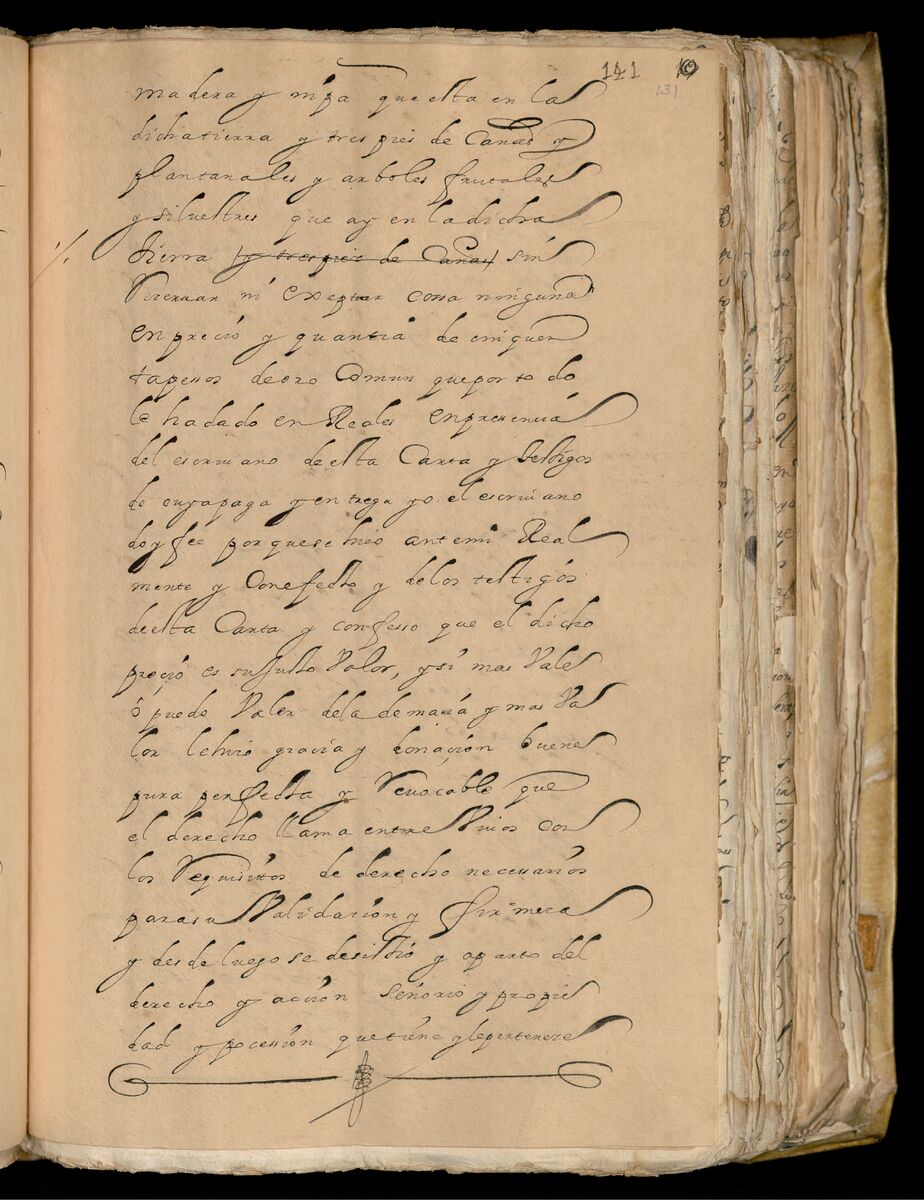 141
431
madera y ripa que esta en la
dicha tierra y tres pies de Canas y
plantanales y arboles frutales
y siluestres que ay en la dicha
tierra y tres pies de Canas sin
Reseruar ni exeptar cossa ninguna
en precio y quantia de cinquen
ta pessos de oro Comun que por todo
le ha dado en Reales en presencia
del escriuano de esta Carta y testigos
de cuya paga y entrega yo el escriuano
doy fee porque se hiço ante mi Real
mente y Con efecto y de los testigos
de esta Carta y confesso que el dicho
preçio es su Justo Valor, y si mas Vale
o puede Valer de la demacia y mas Va
lor le hiço gracia y donaçion buena
pura perfecta y Reuocable que
el derecho llama entre Viuos con
los Requisitos de derecho necessarios
para su Validacion y firmeça
y desde luego se desistio y aparto del
derecho y accion señorio y propie
dad y pocession que tiene y le pertenece